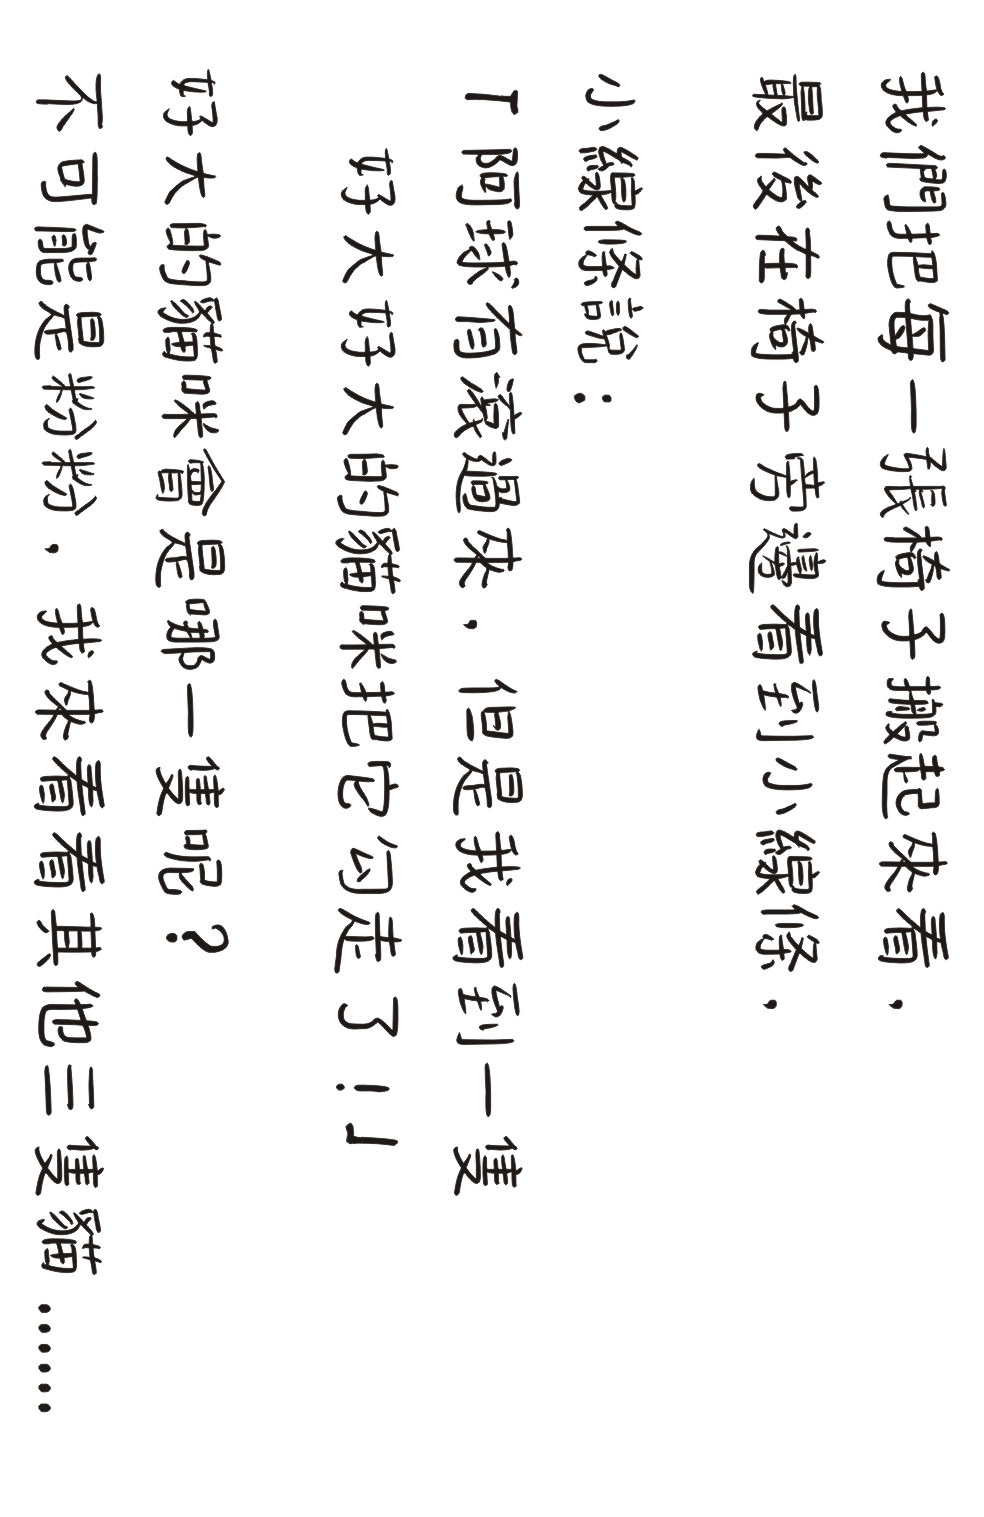 我們把每一張椅子搬起來看，
最後在椅子旁邊看到小線條，
小線條說：
「阿球有滾過來，但是我看到一隻
好大好大的貓咪把它勾走了！」
好大的貓咪會是哪一隻呢？
不可能是粉粉，我來看看其他三隻貓……